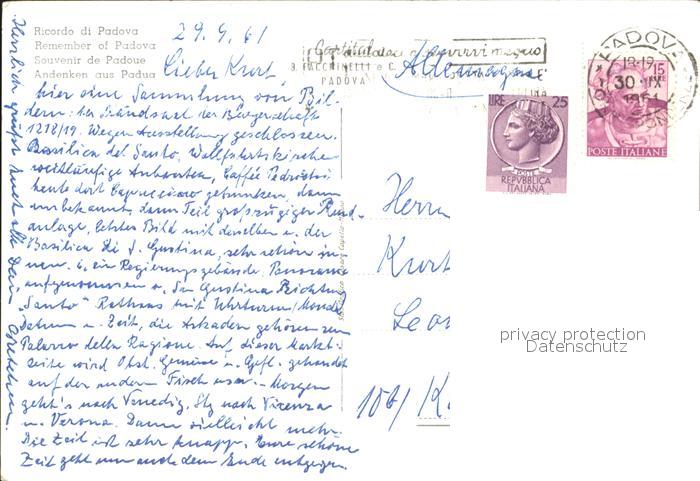 Ricordo di Padova
Remember of Padova
Souvenir de Padoue
Andenken aus Padua
29. 9. 61
Lieber Kurt,
hier eine Sammlung von Bil-
dern: der Ständesaal der Bürgerschaft
1218/19. Wegen Ausstellung geschlossen.
Basilica del Santo, Wallfahrtskirche
weitläufige Caffée Pedrocchi
heute dort Cappuccino getrunken, dann
unbekannt, dann Teil großzügiger Rund-
anlage, letztes Bild mit derselben u. der
Basilica di S. Giustina, sehr schön in-
nen. 6. ein Regierungsgebäude. Panorama
aufgenommen v. San Giustina Richtung
"Santo" Rathaus mit Uhrturm/Monde
Datum u. Zeit, die Arkaden gehören zum
Palazzo della Ragione. Auf dieser Markt-
seite wird Obst, Gemüse u. Gefl. gehandelt
auf der andern Fisch usw. - Morgen
geht's nach Venedig. Stg nach Vicenza
u. Verona. Dann vielleicht mehr.
Die Zeit ist sehr knapp. Eure schöne
Zeit geht nun auch dem Ende entgegen.
Herzlich grüßt Euch alle Dein
Allemagne
FACCHINETTI & C.
PADOVA
LIRE 25
REPVBBLICA
ITALIANA
PADOVA
18-19
30 IX
1961
15
POSTE ITALIANE
Herrn
Kurt
Leo
privacy protection
Datenschutz
10b/ K.